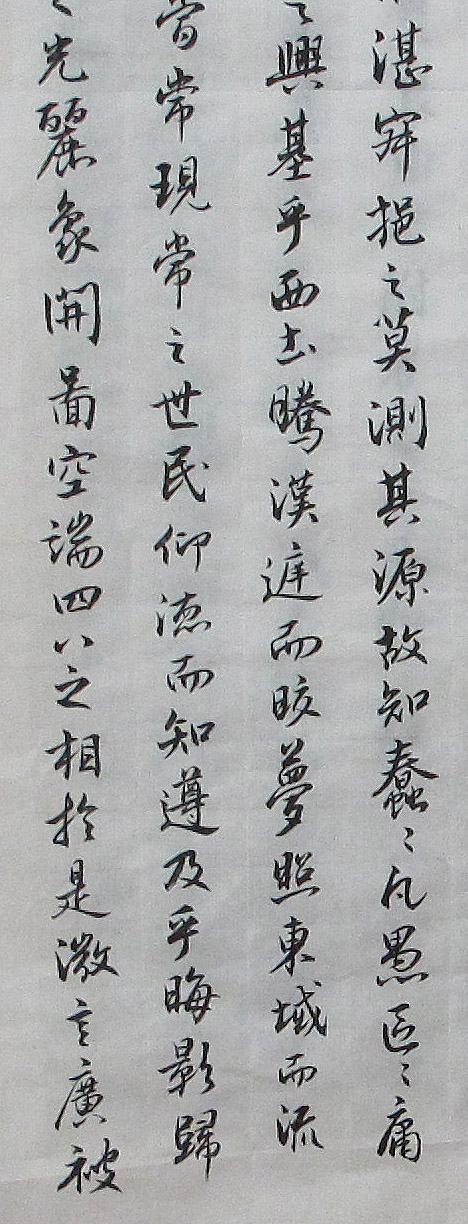 湛寂挹之莫測其源故知蠢〻凡愚區〻庸
之興基乎西土騰漢庭而皎夢照東域而流
常現常之世民仰德而知遵及乎晦影歸
光麗象開圖空端四八之相於是微言廣被